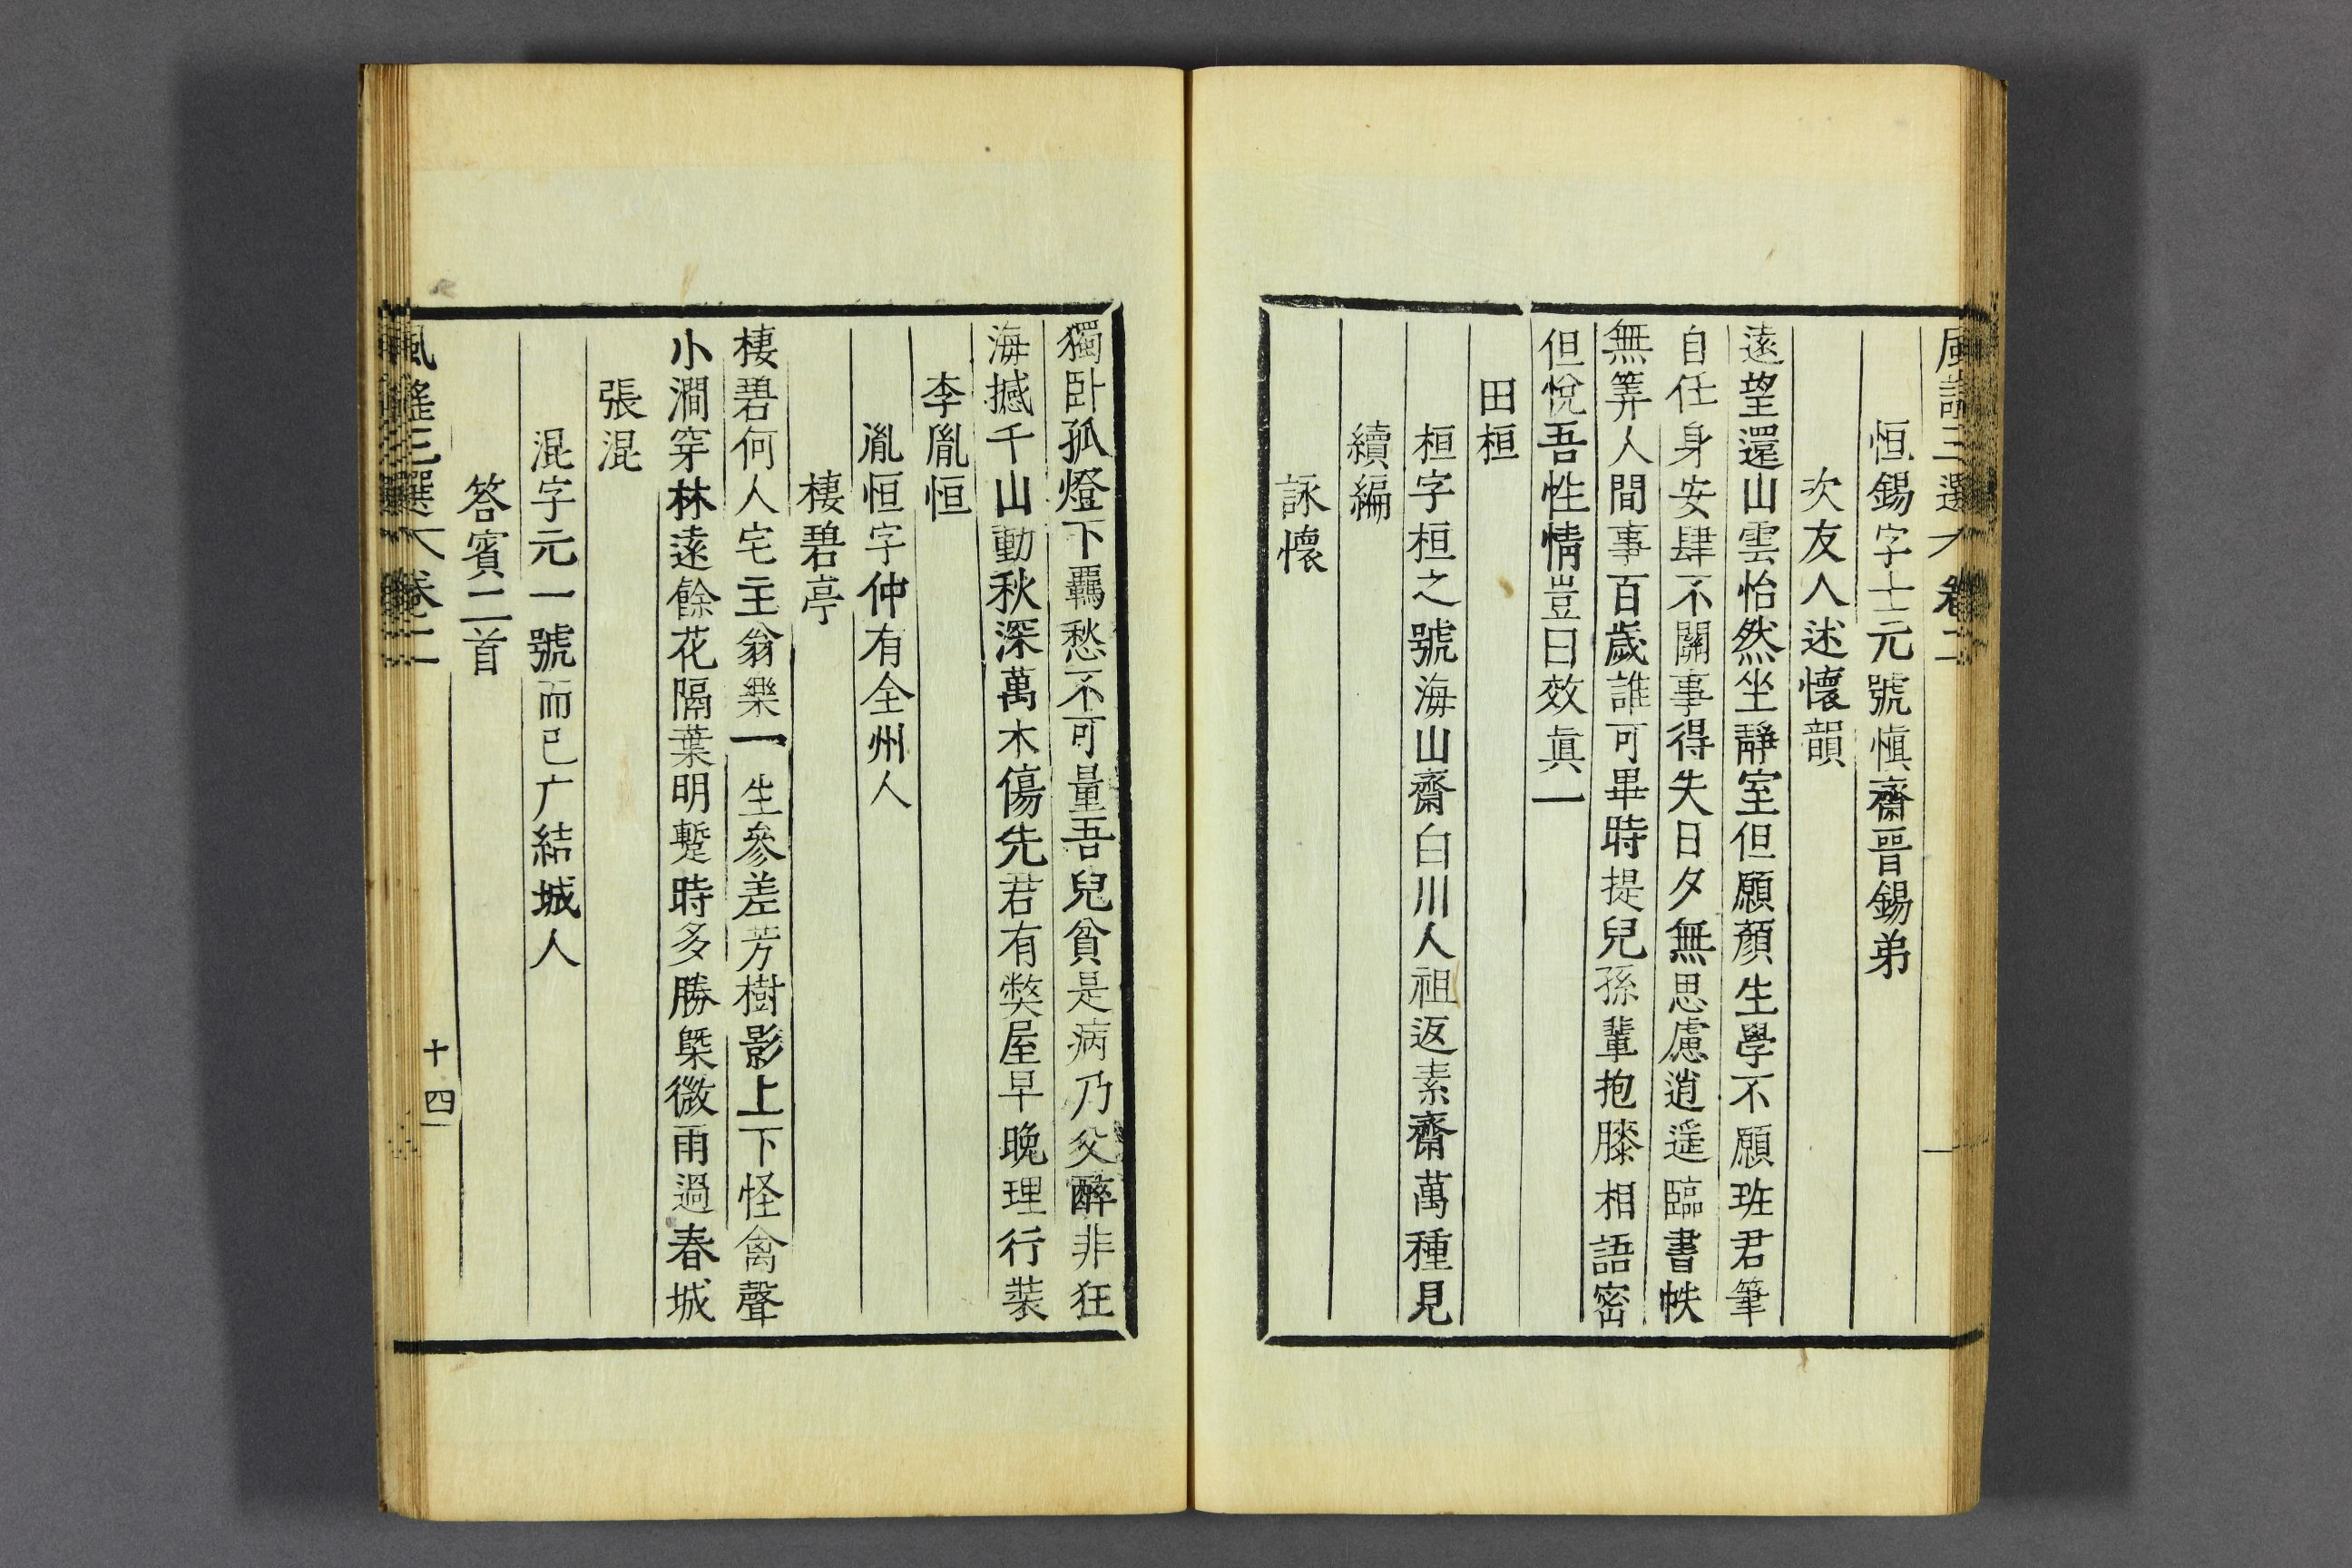 風謠三選 卷二
恒錫字士元號愼齋晋錫弟
次友人述懷韻
遠望還山雲怡然坐靜室但願顏生學不願班君筆
自任身安肆不關事得失日夕無思慮逍遥臨書帙
無筭人間事百歲誰可畢時提兒孫輩抱膝相語密
但悅吾性情豈曰效眞一
田桓
桓字桓之號海山齋白川人祖返素齋萬種見
續編
詠懷
獨卧孤燈下羈愁不可量吾兒貧是病乃父醉非狂
海撼千山動秋深萬木傷先君有獘屋早晚理行裝
李胤恒
胤恒字仲有全州人
棲碧亭
棲碧何人宅主翁樂一生參差芳樹影上下怪禽聲
小澗穿林遠餘花隔葉明蹔時多勝槩微雨過春城
張混
混字元一號而已广結城人
答賓二首
風謠三選 卷二
十四